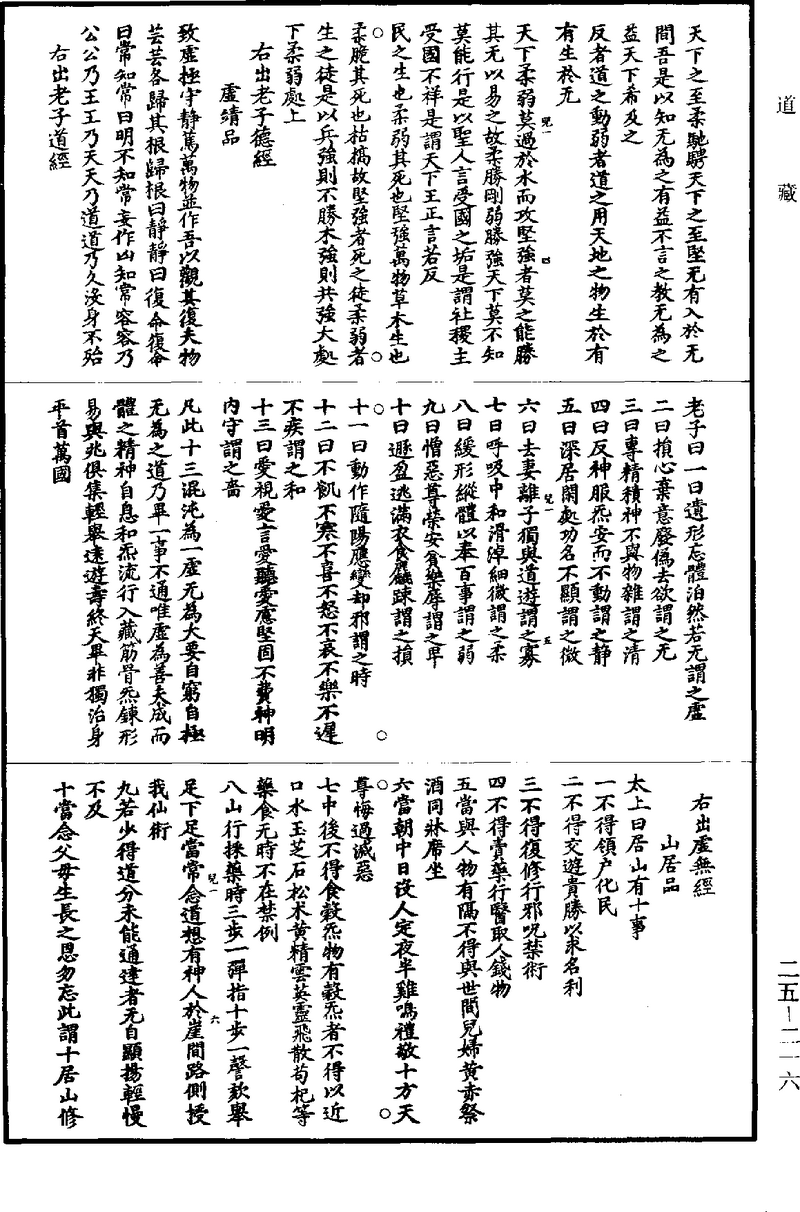 道藏
天下之至柔馳騁天下之至堅无有入於无
間吾是以知无為之有益不言之教无為之
益天下希及之
反者道之動弱者道之用天地之物生於有
有生於无
天下柔弱莫過於水而攻堅強者莫之能勝
其无以易之故柔勝剛弱勝強天下莫不知
莫能行是以聖人言受國之垢是謂社稷主
受國不祥是謂天下王正言若反
民之生也柔弱其死也堅強萬物草木生也
柔脆其死也枯槁故堅強者死之徒柔弱者
生之徒是以兵強則不勝木強則共強大處
下柔弱處上
右出老子德經
虛靖品
致虛極守靜篤萬物並作吾以觀其復夫物
芸芸各歸其根歸根曰靜靜曰復命復命
曰常知常曰明不知常妄作凶知常容容乃
公公乃王王乃天天乃道道乃久沒身不殆
右出老子道經
老子曰一曰遺形忘體泊然若无謂之虛
二曰損心棄意廢偽去欲謂之无
三曰專精積神不與物雜謂之清
四曰反神服炁安而不動謂之靜
五曰深居閑處功名不顯謂之微
六曰去妻離子獨與道遊謂之寡
七曰呼吸中和滑淖細微謂之柔
八曰緩形縱體以奉百事謂之弱
九曰憎惡尊榮安貧樂辱謂之卑
十曰遯盈逃滿衣食麤踈謂之損
十一曰動作隨陽應變却邪謂之時
十二曰不飢不寒不喜不怒不哀不樂不遲
不疾謂之和
十三曰愛視愛言愛聽愛慮堅固不費神明
內守謂之嗇
凡此十三混沌為一虛无為大要自窮自極
无為之道乃畢一事不通唯虛為善夫成而
體之精神自息和炁流行入藏筋骨炁鍊形
易與兆俱集輕舉遠遊壽終天畢非獨治身
平首萬國
右出虛無經
山居品
太上曰居山有十事
一不得領户化民
二不得交遊貴勝以求名利
三不得復修行邪呪禁術
四不得賣藥行醫取人錢物
五當與人物有隔不得與世間兒婦黄赤祭
酒同牀席坐
六當朝中日沒人定夜半雞鳴禮敬十方天
尊悔過滅惡
七中後不得食穀炁物有穀炁者不得以近
口水玉芝石松术黄精雲英靈飛散苟杞等
藥食无時不在禁例
八山行採藥時三步一彈指十步一謦欬舉
足下足當常念道想有神人於崖間路側授
我仙術
九若少得道分未能通達者无自顯揚輕慢
不及
十當念父母生長之恩勿忘此謂十居山修
二五—二一六